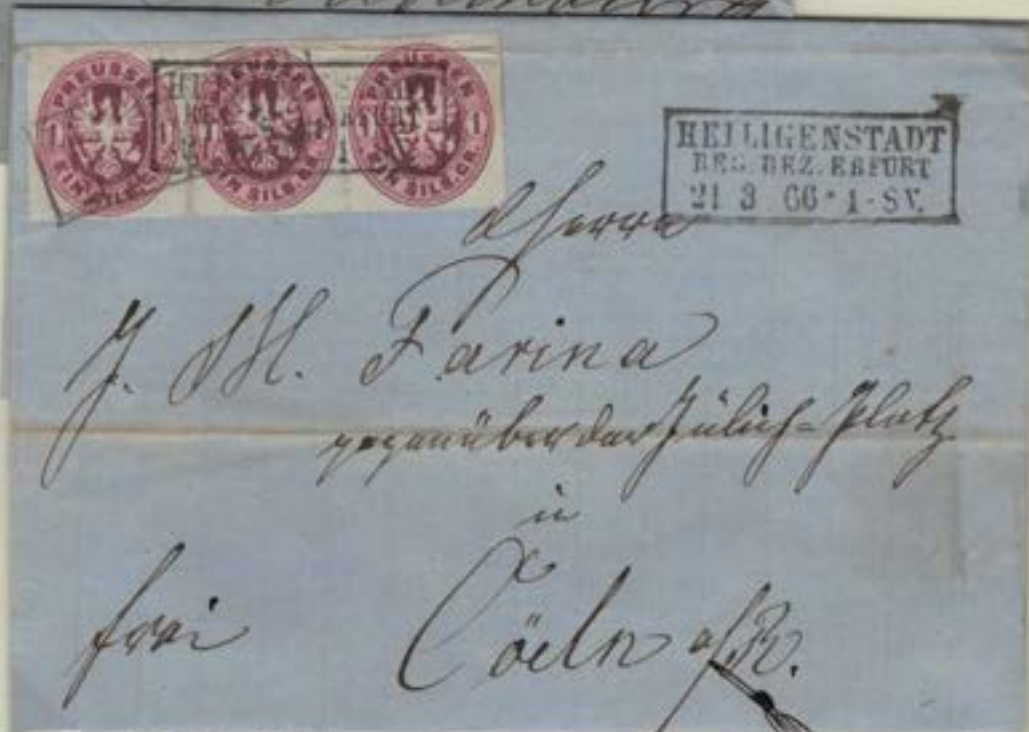 PREUSSEN 1 EIN SILB.GR. 1
PREUSSEN EIN SILB.GR.
PREUSSEN 1 EIN SILB.GR. 1
HEILIGENSTADT
REG. BEZ. ERFURT
21 3 66 * 1 - 8 V.
Herrn
J. M. Farina
gegenüber dem Jülich=Platz
in
frei Cöeln a/R.